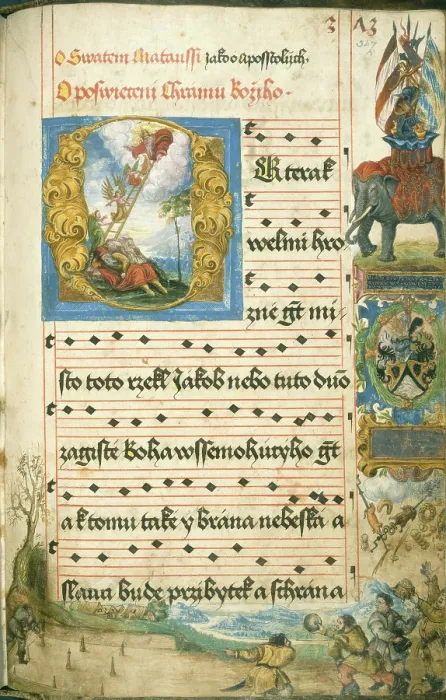 3 A3
367
O Swatem Mataussi jako o aposstolijch.
O poswieceni Chramu Božiho.
Kterak
welmi hro
zné gt mi
sto toto rzekl Jakob nebo tuto duo
zagisté Boha wssemohúcyho gt
a k tomu také y brána nebeská a
slawa bude przybytek a schrána